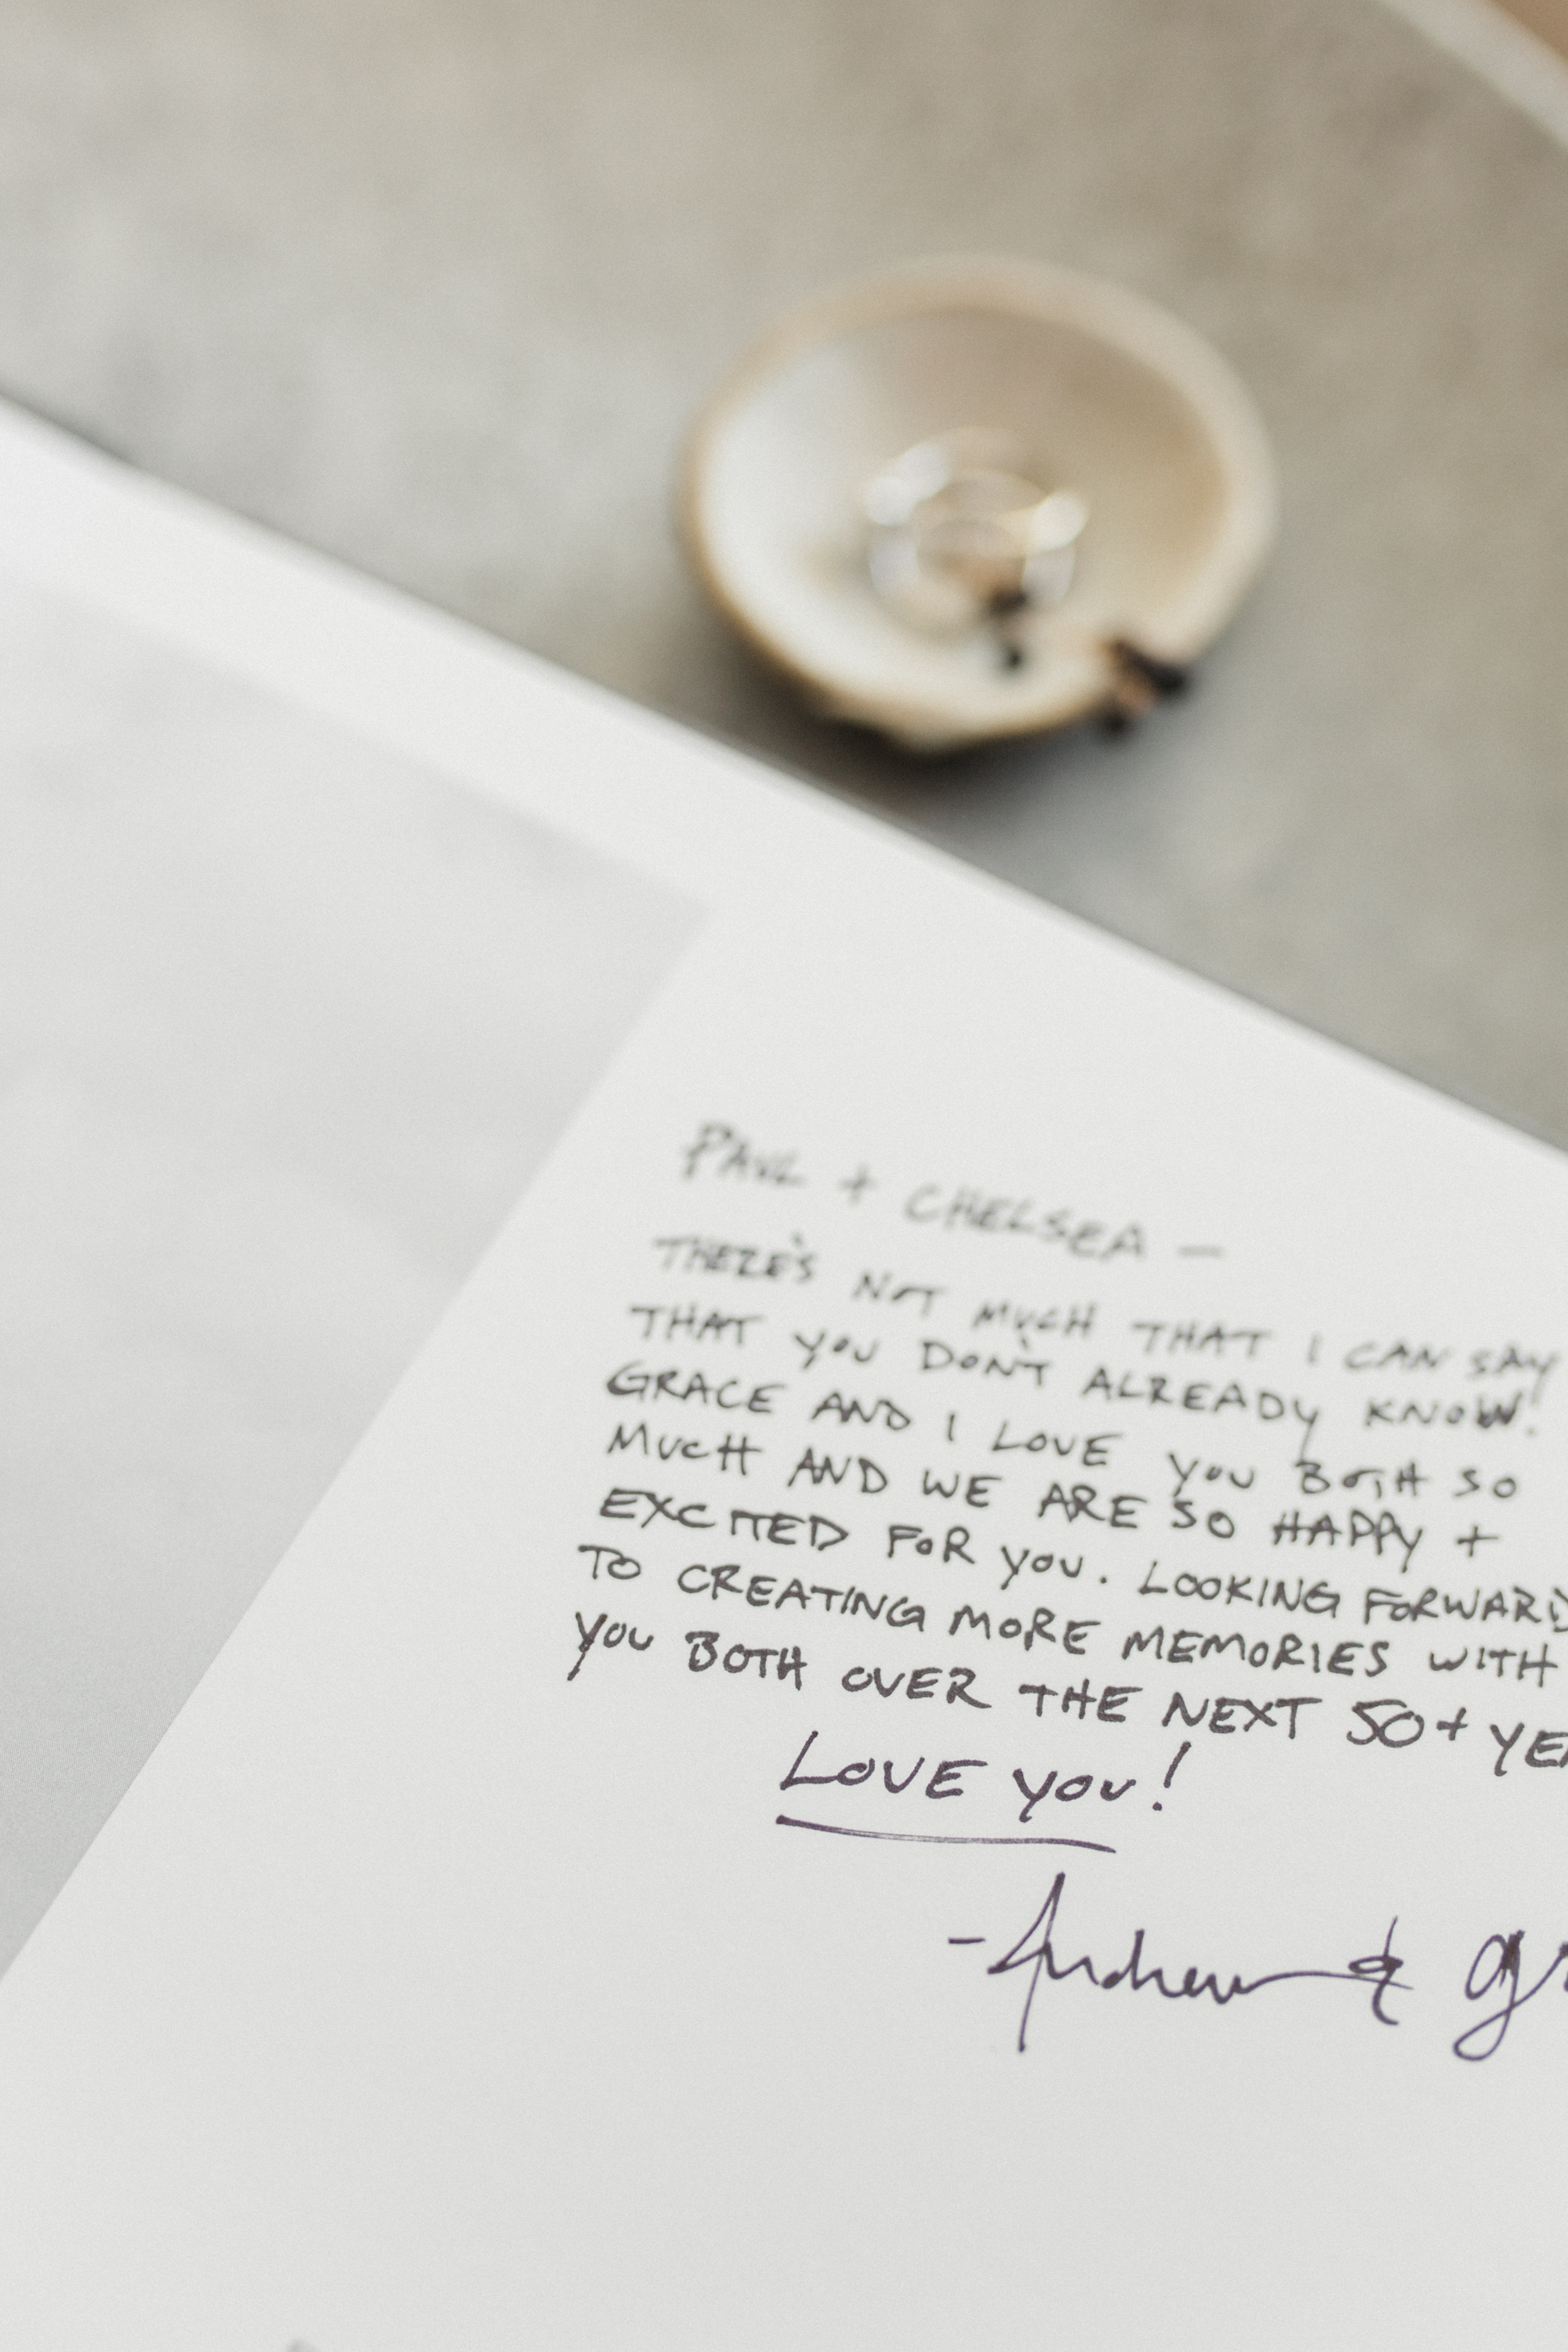 PAUL + CHELSEA —
THERE'S NOT MUCH THAT I CAN SAY
THAT YOU DON'T ALREADY KNOW!
GRACE AND I LOVE YOU BOTH SO
MUCH AND WE ARE SO HAPPY +
EXCITED FOR YOU. LOOKING FORWARD
TO CREATING MORE MEMORIES WITH
YOU BOTH OVER THE NEXT 50+ YEA
LOVE YOU!
- Andrew & Gr